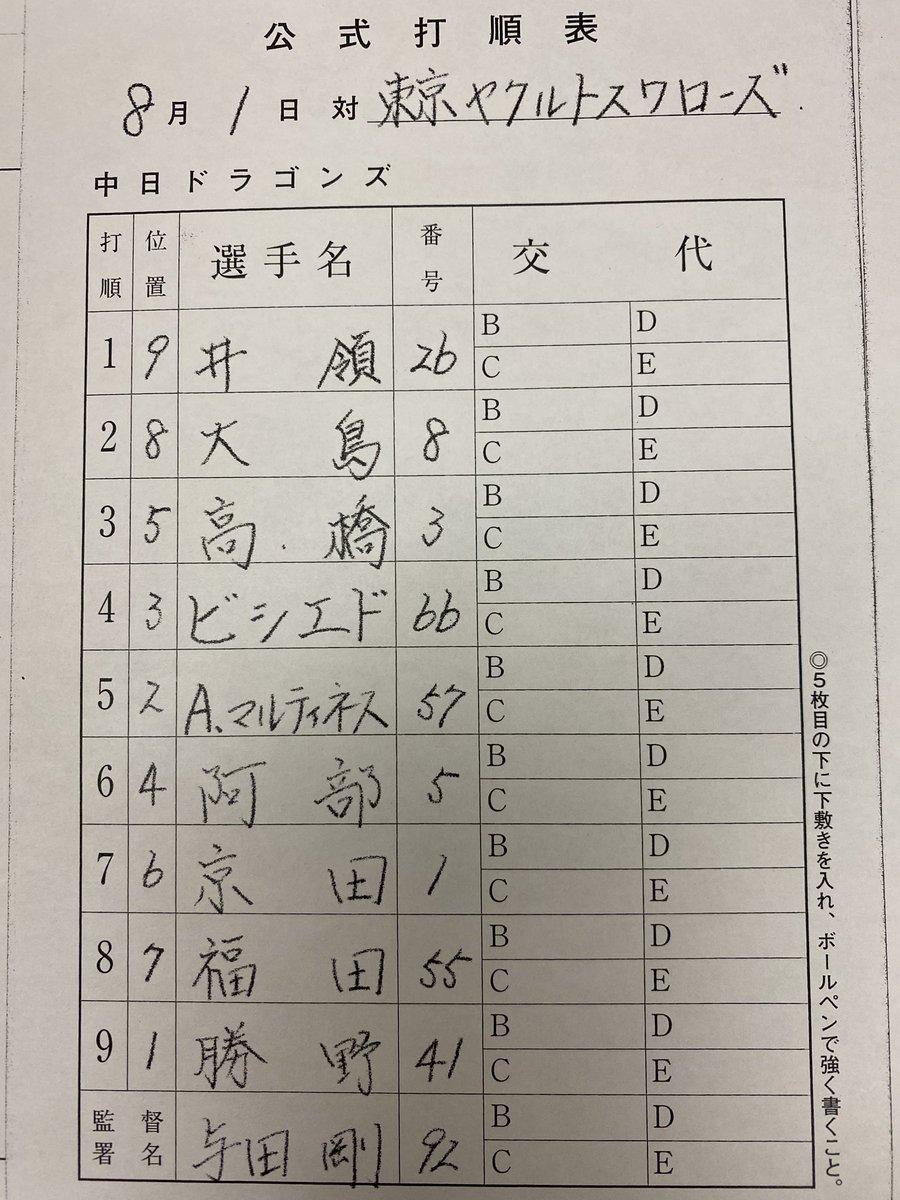 公式打順表
8月1日対 東京ヤクルトスワローズ
中日ドラゴンズ
打順 位置 選手名 番号 交代
1 9 井領 26 B D
C E
2 8 大島 8 B D
C E
3 5 高橋 3 B D
C E
4 3 ビシエド 66 B D
C E
5 2 A.マルティネス 57 B D
C E
6 4 阿部 5 B D
C E
7 6 京田 1 B D
C E
8 7 福田 55 B D
C E
9 1 勝野 41 B D
C E
監督署名 与田剛 92 B D
C E
◎5枚目の下に下敷きを入れ、ボールペンで強く書くこと。